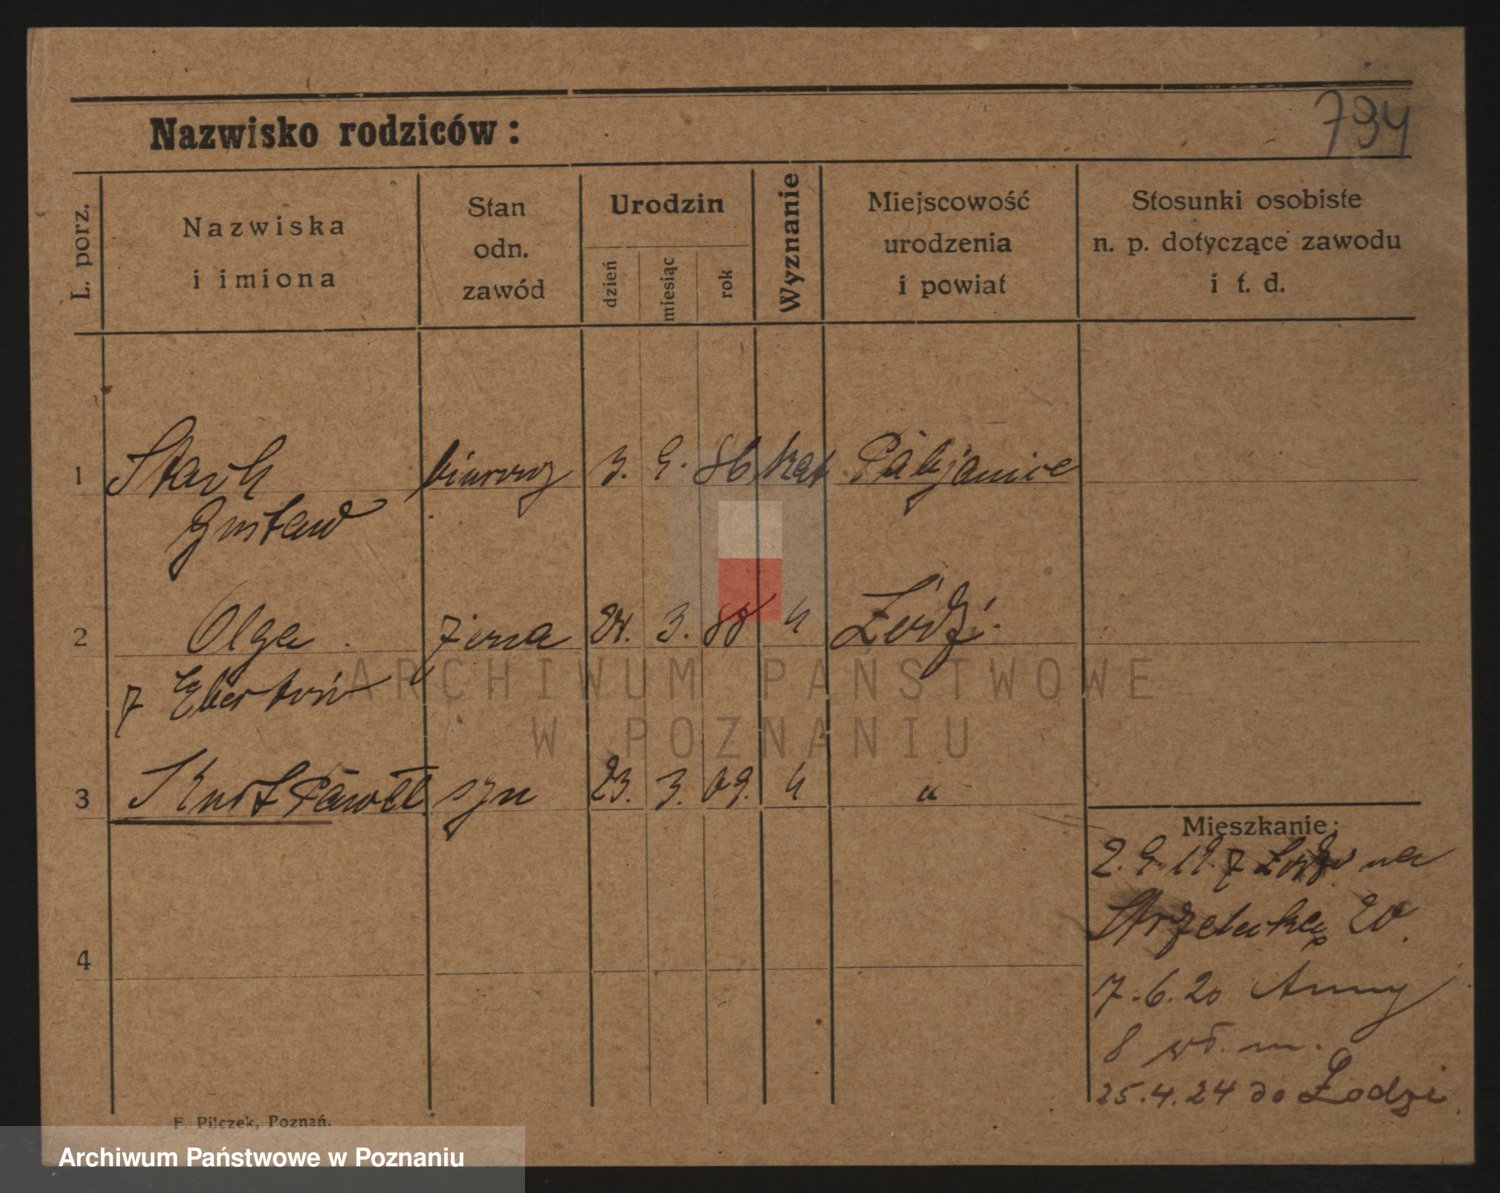 794
Nazwisko rodziców:
L. porz.
Nazwiska
i imiona
Stan
odn.
zawód
Urodzin
dzień
miesiąc
rok
Wyznanie
Miejscowość
urodzenia
i powiat
Stosunki osobiste
n. p. dotyczące zawodu
i t. d.
1 Stark biurowy 3. 9. 86 kat Pabjanice
Gustaw
2 Olga żona 21. 3. 88 " Łódź.
z Ebertów
3 Kurt Paweł syn 23. 3. 09. " "
4
Mieszkanie:
2. 9. 19. z Łodzi na
Strzelecka 20.
7.6.20 Anny
8 wł. m.
25.4.24 do Łodzi.
F. Pilczek, Poznań.
ARCHIWUM PAŃSTWOWE
W POZNANIU
Archiwum Państwowe w Poznaniu